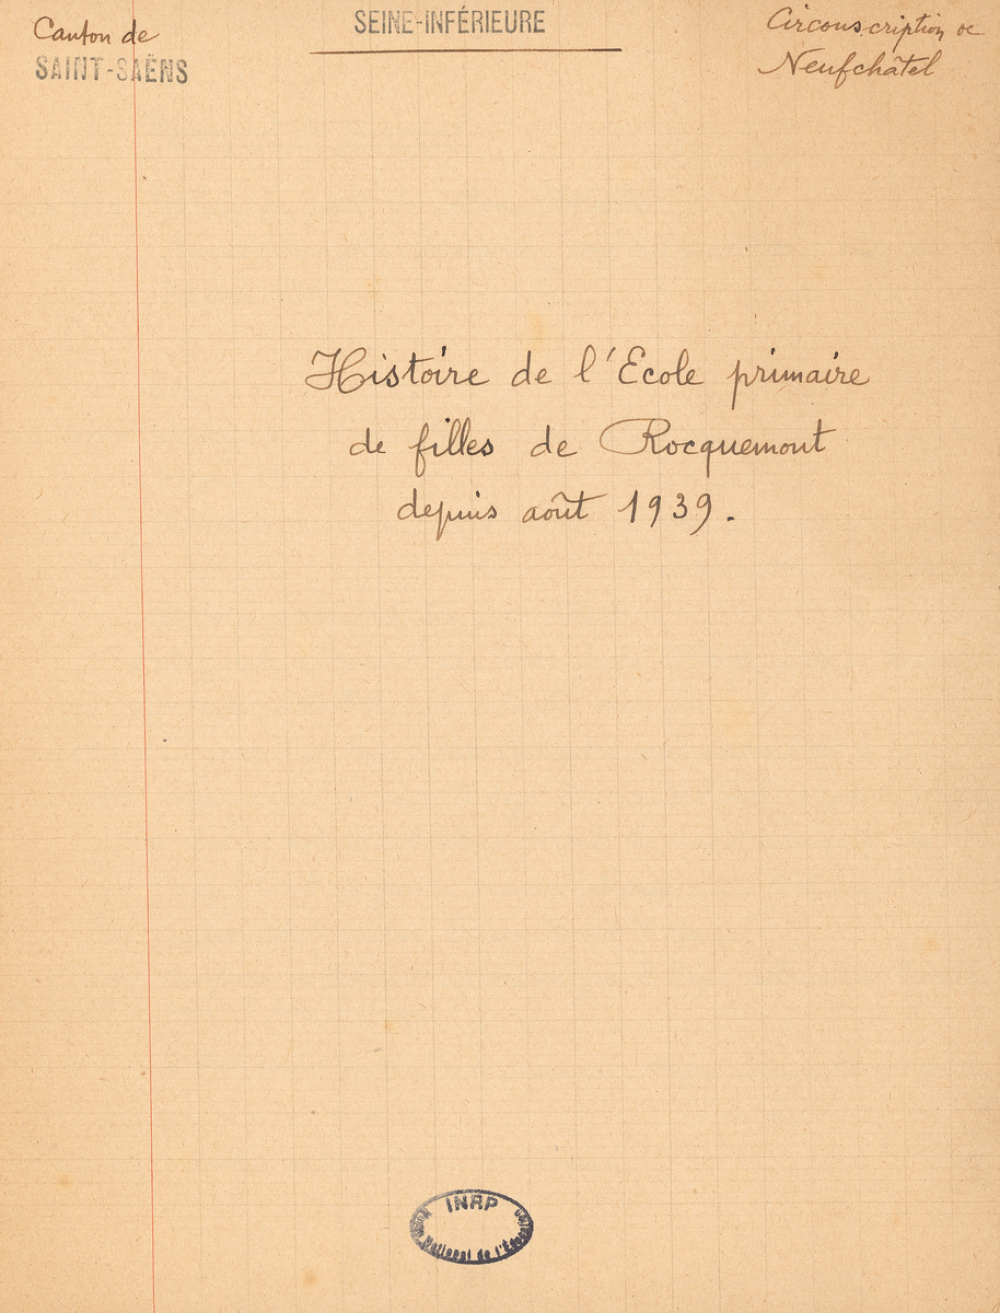 Canton de
SAINT-SAËNS
SEINE-INFÉRIEURE
Circonscription de
Neufchâtel
Histoire de l'Ecole primaire
de filles de Rocquemont
depuis août 1939.
INRP
National de l'